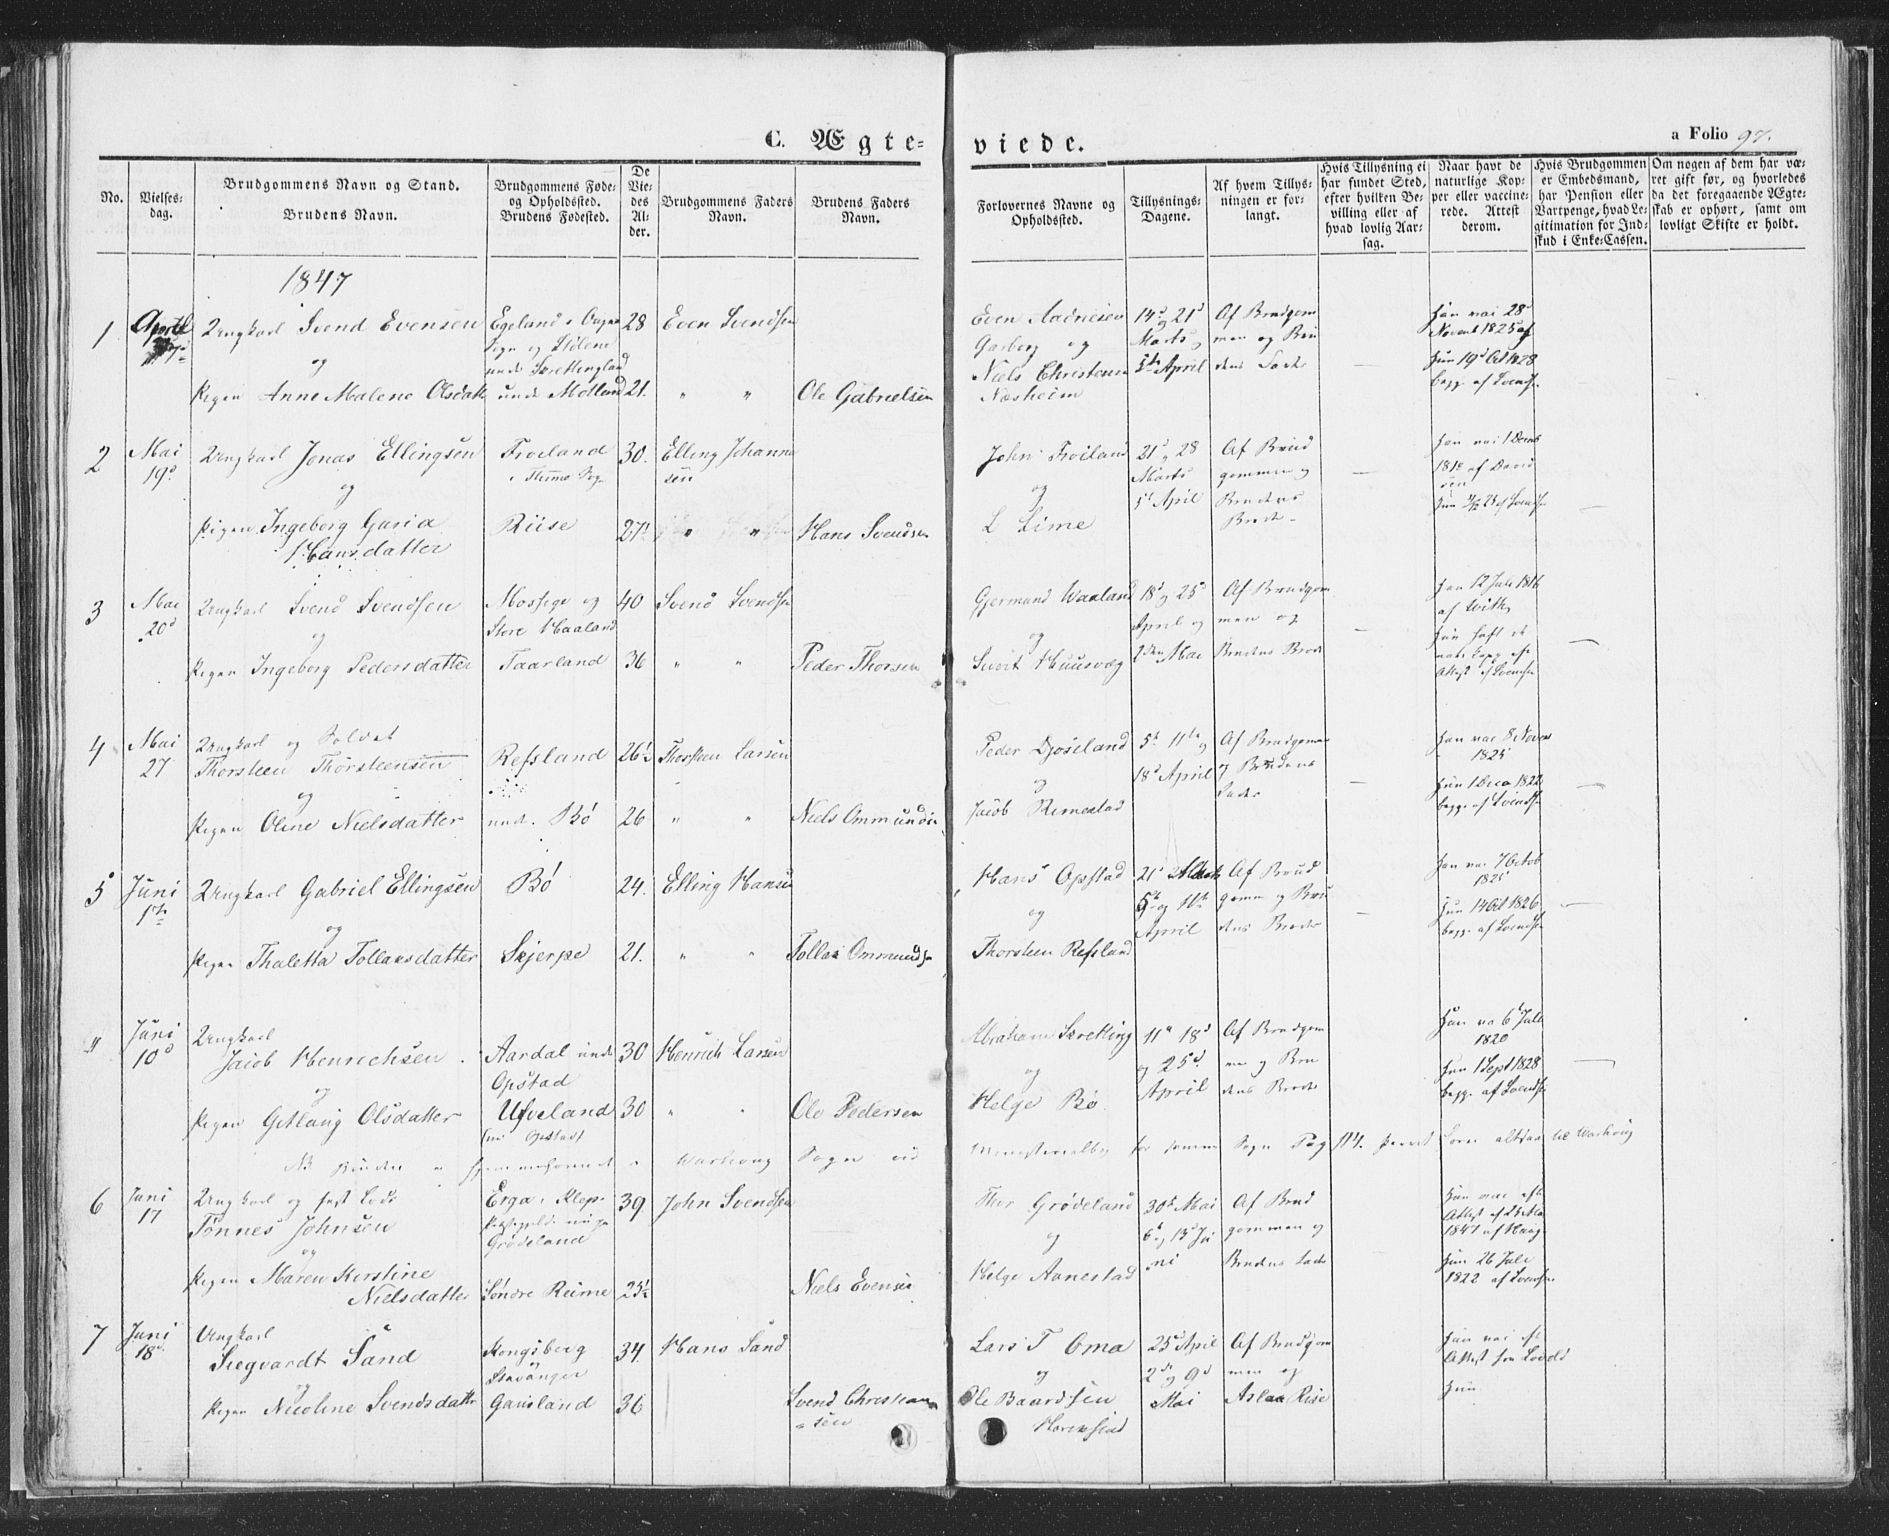 C. Ægte-
viede.
a Folio 97.
No.
Vielses-
dag.
Brudgommens Navn og Stand.
Brudens Navn.
Brudgommens Føde-
og Opholdssted.
Brudens Fødested.
De
Vie-
des
Al-
der.
Brudgommens Faders
Navn.
Brudens Faders
Navn.
Forlovernes Navne og
Opholdssted.
Tillysnings-
Dagene.
Af hvem Tillys-
ningen er for-
langt.
Hvis Tillysning ei
har fundet Sted,
efter hvilken Be-
villing eller af
hvad lovlig Aar-
sag.
Naar havt de
naturlige Kop-
per eller vaccine-
rede. Attest
derom.
Hvis Brudgommen
er Embedsmand,
har Pension eller
Vartpenge, hvad Le-
gitimation for Ind-
skud i Enke-Cassen.
Om nogen af dem har væ-
ret gift før, og hvorledes
da det foregaaende Ægte-
skab er ophørt, samt om
lovligt Skifte er holdt.
1847
1
April
Ungkarl Svend Evensen
og
Pigen Anne Malene Olsdatt
Egeland i Ougne
Sogn og Stilene
unde Særetlingland
unde Motland
28
21.
Even Svendsen
" "
Ole Gabrielsen
Even Aadnesen
Garborg og
Niels Christensen
Næsheim
14d 21d
Marts og
5te April
Af Brudgom
men og Bru
dens Fader
Han vac 28d
Novemb 1825 af
Hun 19d Oct 1828
begge af Svendsen
2
Mai
19d
Ungkarl Jonas Ellingsen
og
Pigen Ingeborg Garia
Hansdatter
Frøiland
i Thime Sogn
Riise
30.
27½
Elling Johanne
sen
" "
Hans Svendsen
John Frøiland
og
L Lime
21d og 28
Marts
5t April
Af Brud
gommen og
Brudens
Broder
Han vac 1 Decemb
1818 af David
sen
3
Mai
20d
Ungkarl Svend Svendsen
og
Pigen Ingeborg Pedersdatter
Mossige og
Store Haaland
Taarland
40
36
Svend Svendsen
" "
Peder Thorsen
Gjermund Waaland
og
Sivert Huusvæg
18d og 25d
April og
2den Mai
Af Brudgom
men og
Brudens Broder
Han 12 Juli 1816
af With
Hun haft de
nat. Kopp. efter
Attest af Svendsen
4
Mai
27
Ungkarl og Solvat
Thorsteen Thorsteensen
og
Pigen Oline Nielsdatter
Refsland
unde Bø
26½
26
Thorsteen Larsen
" "
Niels Ommundsen
Peder Djøseland
og
Jacob Rimestad
5te 11te og
18d April
Af Brudgommen
og Brudens
Fader
Han vac 8 Novem
1825
Hun 1 Deca 1822
begge af Svendsen
5
Juni
Ungkarl Gabriel Ellingsen
og
Pigen Thaletta Tollaksdatter
Bø
Skjerpe
24.
21.
Elling Hansen
" "
Tollak Ommundsen
Hans Opstad
og
Thorsteen Refsland
21d Marts
5te og 11te
April
Af Brud
gommen og Bru
dens Broder
Han vac 7 Octob
1825
Hun 14 Oct 1826
begge af Svendsen
Juni
10d
Ungkarl
Jacob Henrichsen
og
Pigen Getlaug Olsdatter
Aardal unde
Opstad
Ufveland
30
30
Henrich Larsen
" "
Ole Pedersen
Abraham Særetting
og
Helge Bø
11te 18d
og 25d
April
Af Brudgom
men og Bru
dens Broder
Han vac 6 Juli
1820
Hun 1 Sept 1828
begge af Svendsen
NB Bruden er hjemmehørende i Warhoug Sogn vid
Ministerialbog for samme Sogn Pag 114.
6
Juni
17
Ungkarl og
Tønnes Johnsen
og
Pigen Maren Kerstine
Nielsdatter
Erga i Klep
Grødeland
Søndre Reime
39
25½
John Svendsen
Niels Evensen
Thor Grødeland
og
Helge Aanestad
30d Mai
6te og 13d Ju
ni
Af Brud
gommen og
Brudens Fader
Han vac efter
Attest af
1847 af Haag
Hun 26 Juli
1822 af Svendsen
7
Juni
18d
Ungkarl
Siegvardt Sand
og
Pigen Nicoline Svendsdatter
Kongsberg
Stavanger
Gausland
34.
36
Hans Sand
Svend Christian
sen
Lars T Oma
og
Ole Baardsen
25d April
2den og 9d
Mai
Af Brudgom
men og
Aslak Rise
Han vac eft
Attest fra
Hun